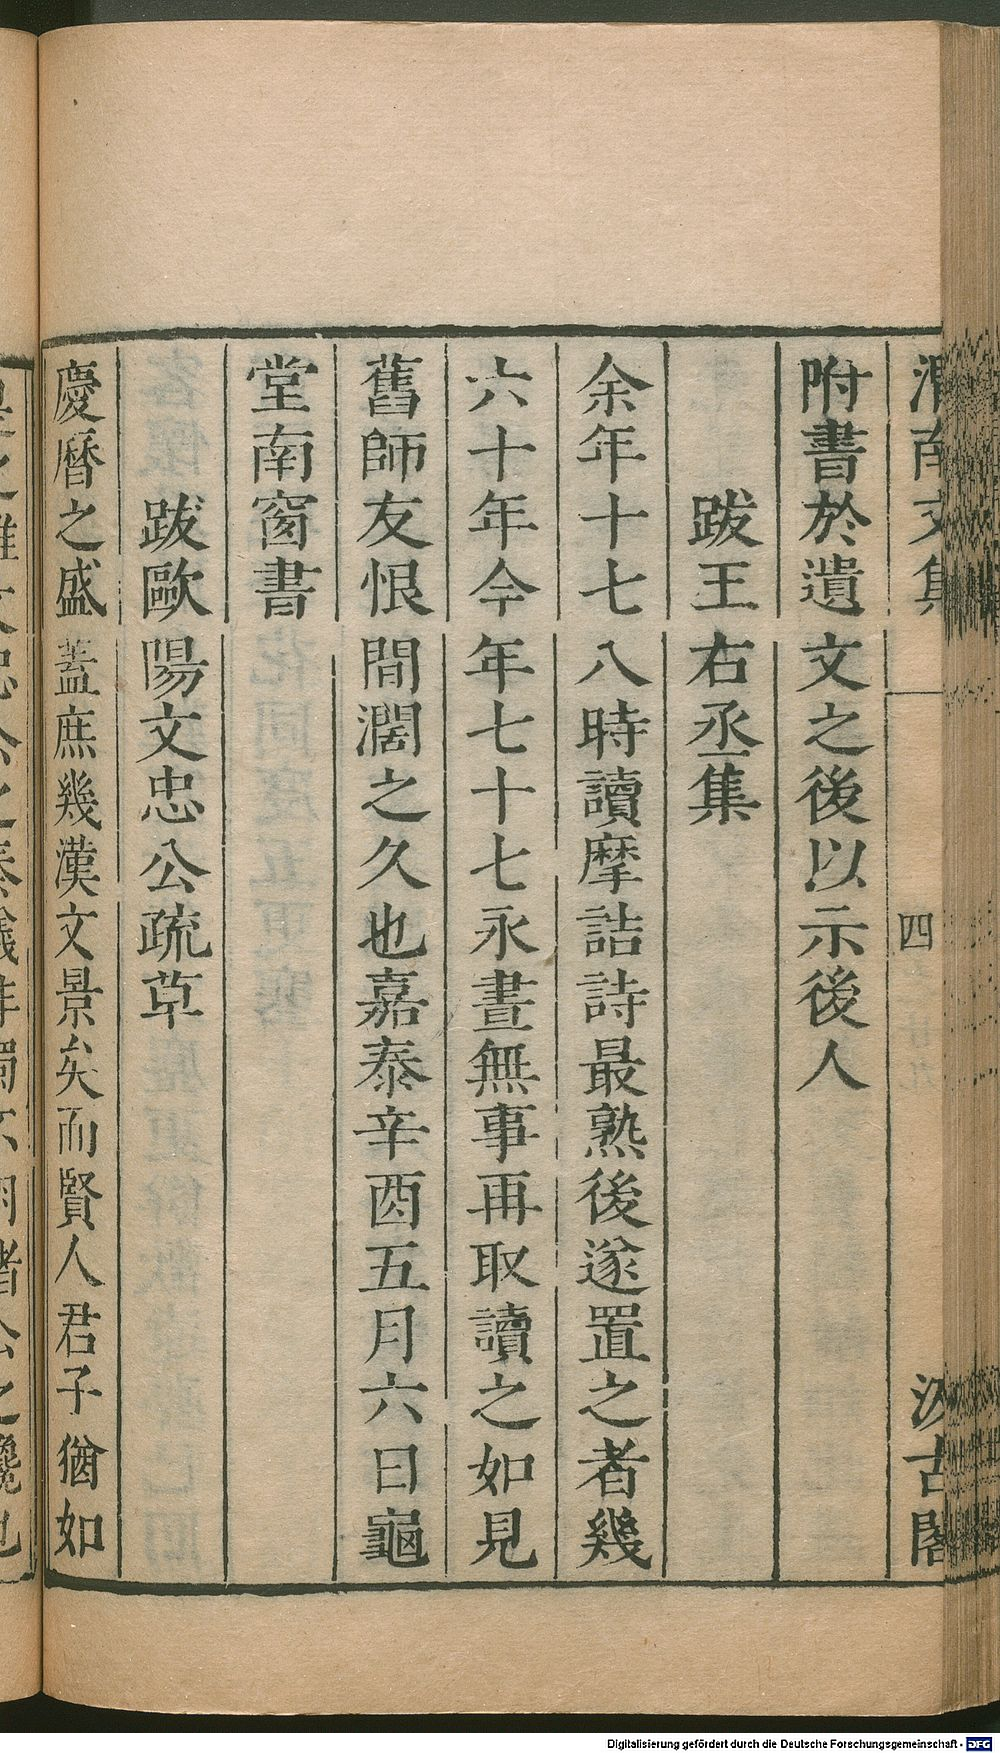 渭南文集
四
汲古閣
附書於遺文之後以示後人
跋王右丞集
余年十七八時讀摩詰詩最熟後遂置之者幾
六十年今年七十七永晝無事再取讀之如見
舊師友恨間濶之久也嘉泰辛酉五月六日龜
堂南窗書
跋歐陽文忠公疏草
慶曆之盛蓋庶幾漢文景矣而賢人君子猶如
Digitalisierung gefördert durch die Deutsche Forschungsgemeinschaft - DFG